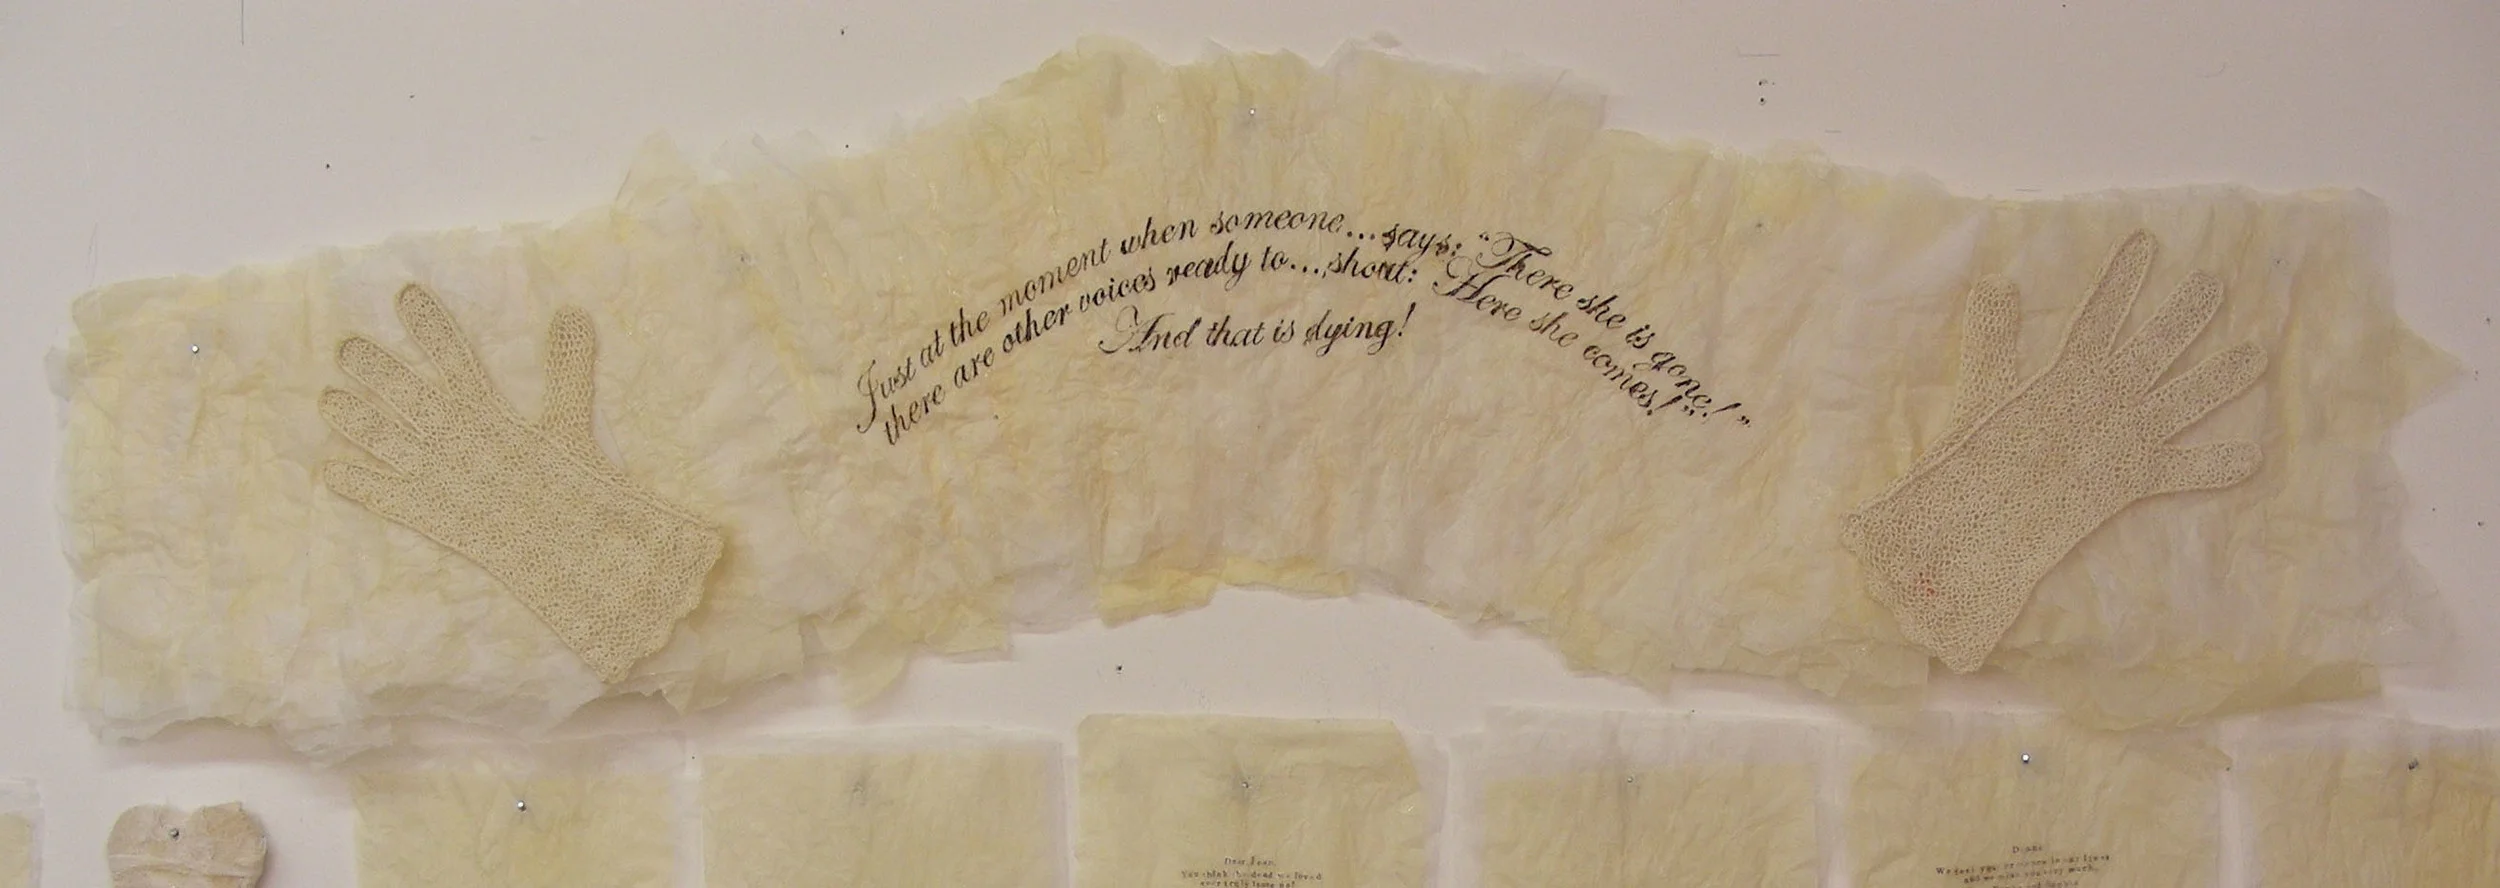 Just at the moment when someone...says: “There she is gone!”
there are other voices ready to...shout: “Here she comes!”
And that is dying!
Dear Joan,
You think the dead we loved
ever truly leave us?
Duane
We feel your presence in our lives
and we miss you very much.